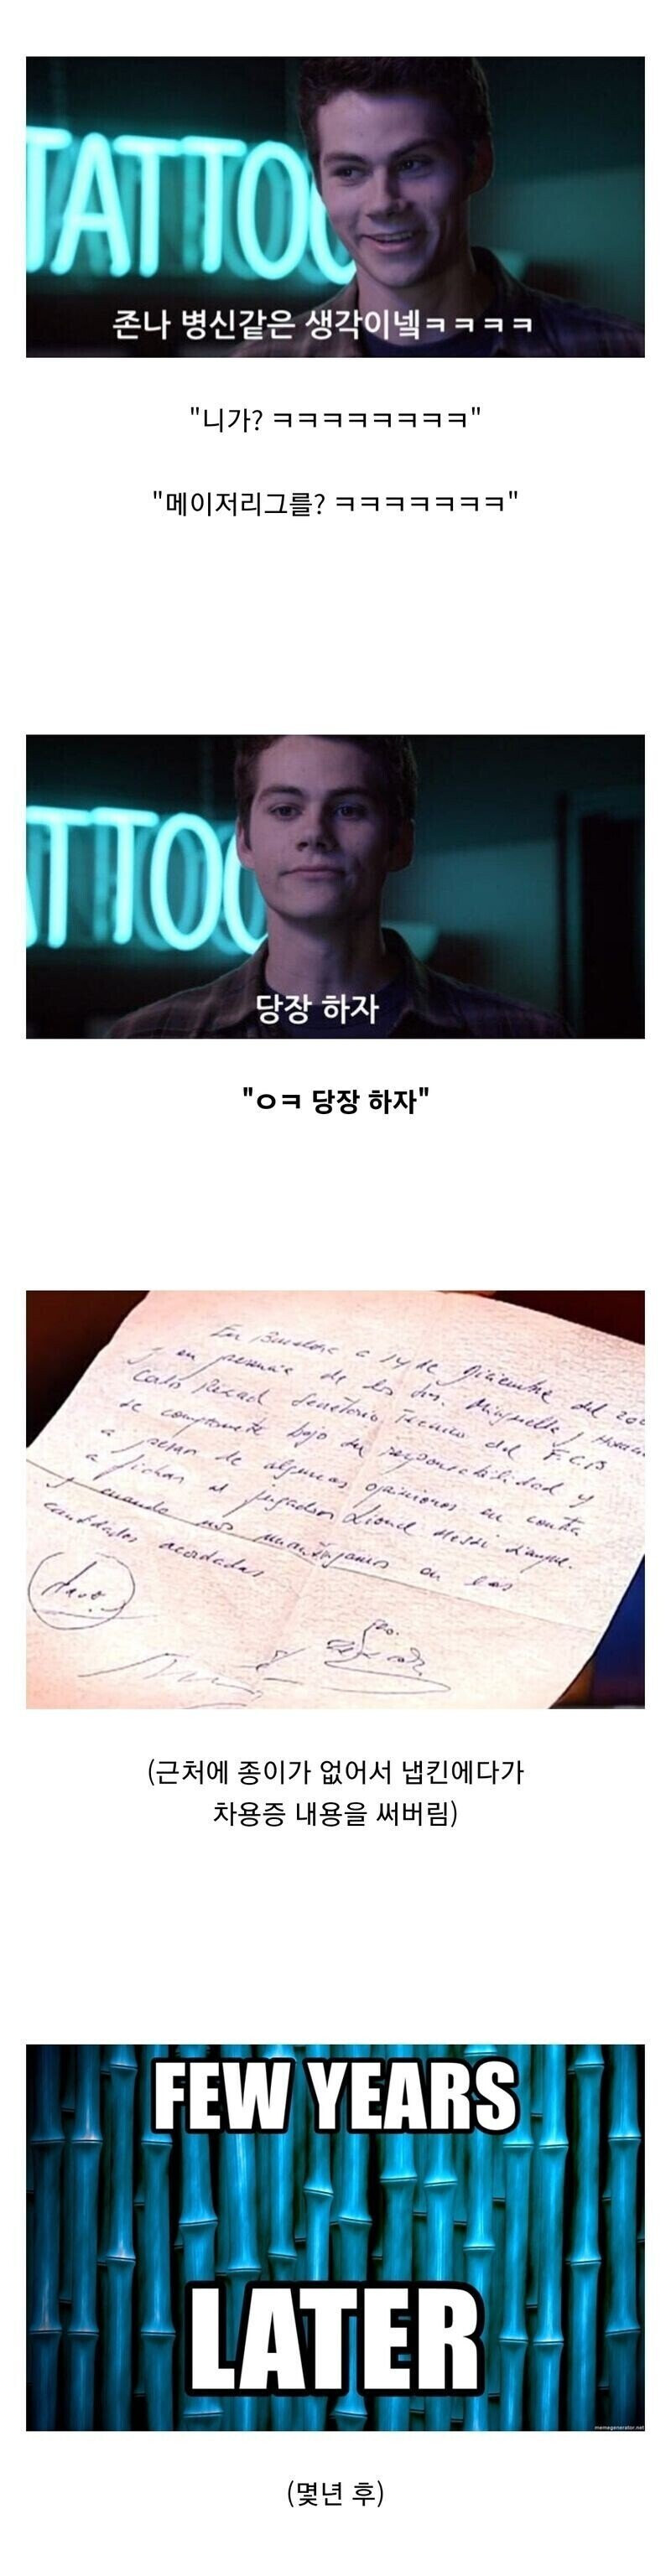 TATTOO
존나 병신같은 생각이넼ㅋㅋㅋㅋ
"니가? ㅋㅋㅋㅋㅋㅋㅋㅋ"
"메이저리그를? ㅋㅋㅋㅋㅋㅋㅋ"
ATTOO
당장 하자
"ㅇㅋ 당장 하자"
En Barcelona a 14 de Diciembre del 200
y en presencia de los Srs. Minguella y Horacio
Carlos Rexach Secretario Técnico del F.C.B
se compromete bajo su responsabilidad y
a pesar de algunas opiniones en contra
a fichar al jugador Lionel Messi siempre
y cuando nos mantengamos en las
cantidades acordadas
(근처에 종이가 없어서 냅킨에다가
차용증 내용을 써버림)
FEW YEARS
LATER
memegenerator.net
(몇년 후)